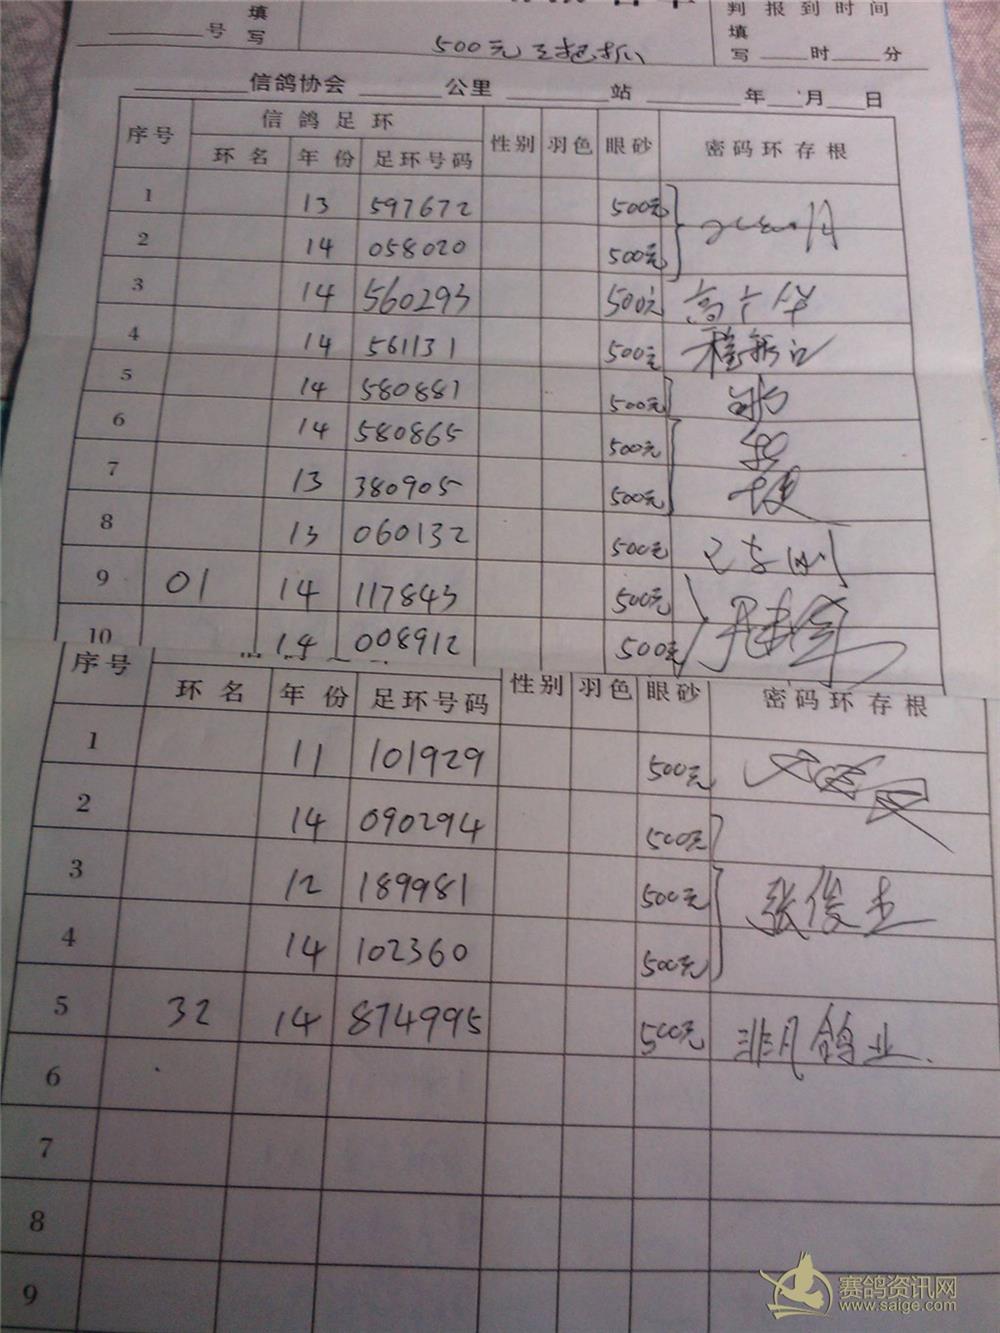 填 判 报 到 时 间
号 写 填
500元 写 时 分
信鸽协会 公里 站 年 月 日
序号 信 鸽 足 环 性别 羽色 眼砂 密 码 环 存 根
环 名 年 份 足环号码
1 13 597672 500元
2 14 058020 500元
3 14 560293 500元 高广华
4 14 561131 500元
5 14 580881 500元
6 14 580865 500元
7 13 380905 500元
8 13 060132 500元
9 01 14 117843 500元
10 14 008912 500元
序号 环 名 年 份 足环号码 性别 羽色 眼砂 密 码 环 存 根
1 11 101929 500元
2 14 090294 500元
3 12 189981 500元 张俊杰
4 14 102360 500元
5 32 14 874995 500元 非凡鸽业.
6
7
8
9
赛鸽资讯网
www.saige.com